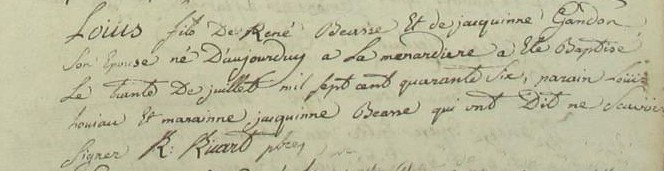 Loius fils De René Beasse Et de jacquinne Gandon
Son Epouse né D'aujourduy a La menardiere a Eté Baptisé
Le trante De juillet mil sept cent quarante six, parain Loüis
houiau Et marainne jacquinne Beasse qui ont Dit ne Scavoir
Signer R: Ricart ptre